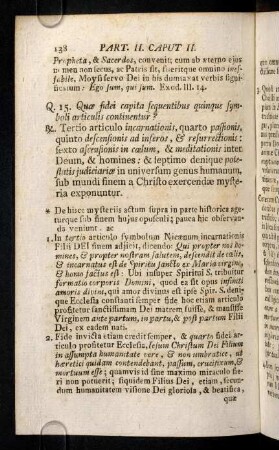 138 PART. II. CAPUT II.
Propheta, & Sacerdos, convenit; cum ab æterno ejus
nomen non secus, ac Patris sit, fueritque omnino ineffabile,
Moysi servo Dei in his dumtaxat verbis significatum:
Ego sum, qui sum. Exod. III. 14.
Q. 15. Quæ fidei capita sequentibus quinque symboli
articulis continentur?
R. Tertio articulo incarnationis, quarto passionis,
quinto descensionis ad inferos, & resurrectionis:
sexto ascensionis in cœlum, & meditationis intet
Deum, & homines: & leptimo denique potestatis
judiciariæ in universum genus humanum,
sub mundi finem a Christo exercendæ mysteria
exponuntur.
* De hisce mysteriis actum supra in parte historica ageturque
sub finem hujus opusculi; pauca hic observanda
veniunt. ac
1. In tertio articulo symbolum Nicænum incarnationis
Filii DEI finem adjicit, dicendo: Qui propter nos homines,
& propter nostram salutem, descendit de cœlis,
& incarnatus est de Spiritu sancto ex Maria virgine,
& homo factus est: Ubi insuper Spiritui S. tribuitur
formatio corporis Domini, quod ea sit opus infiniti
amoris divini, qui amor divinus est ipse Spir. S. denique
Ecclesia constanti semper fide hoc etiam articulo
profitetur sanctissimam Dei matrem fuisse, & mansisse
Virginem ante partum, in partu, & post partum Filii
Dei, ex eadem nati.
2. Fide invicta etiam credit semper, & quarto fidei articulo
profitetur Ecclesia, Jesum Christum Dei Filium
in assumpta humanitate vere, & non umbratice, ut
hæretici quidam contendebant, passum, crucifixum, &
mortuum esse; quamvis id sine maximo miraculo fieri
non potuerit; siquidem Filius Dei, etiam, secundum
humanitatem visione Dei gloriosa, & beatifica,
que